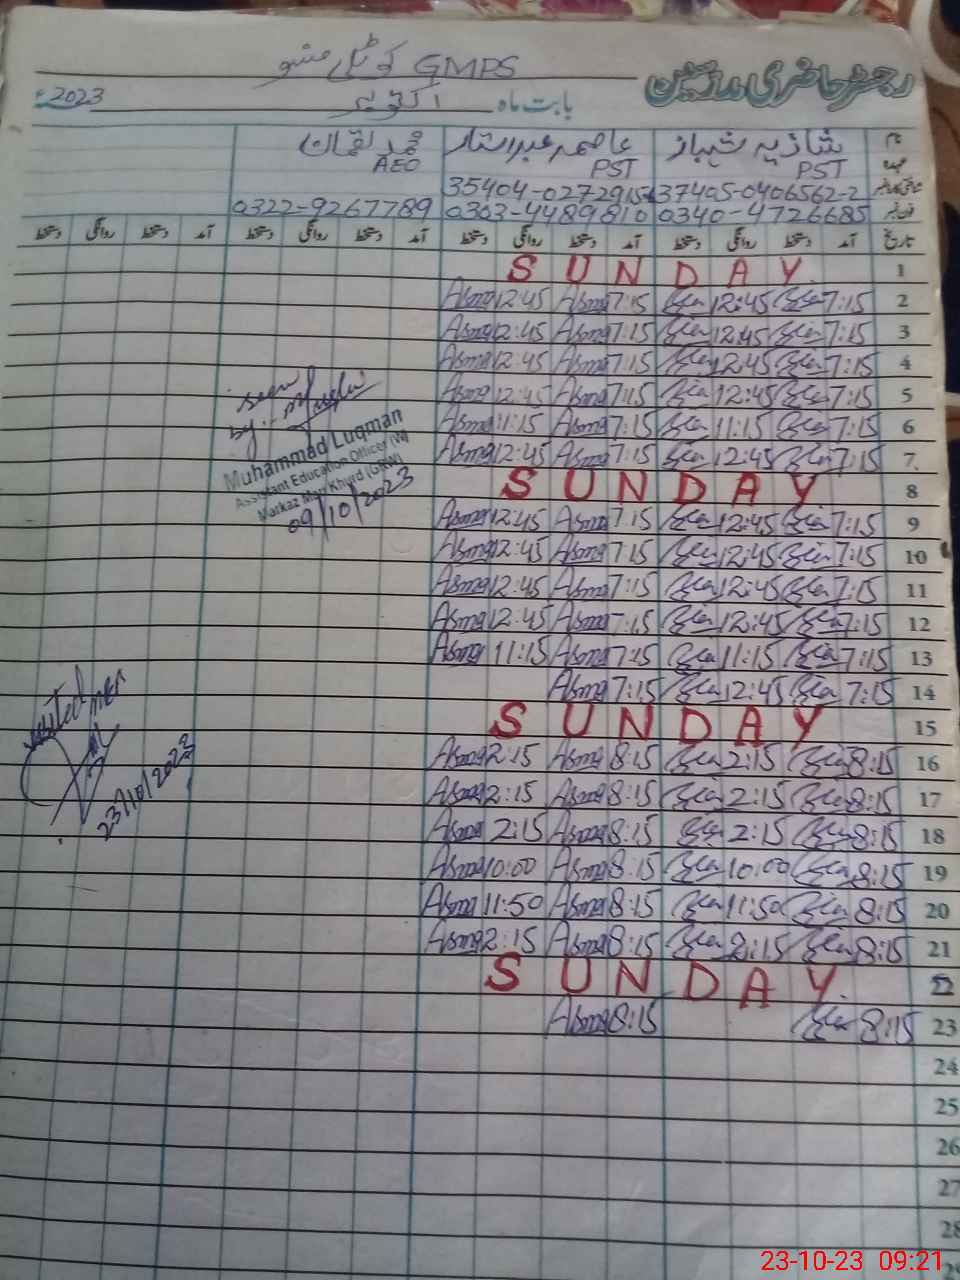 رجسٹر حاضری مدرسین GMPS کوٹلی منو
بابت ماہ اکتوبر 2023ء
نام شازیہ شہباز عاصمہ عبدالستار محمد لقمان
عہدہ PST PST AEO
37405-0406562-2 35404-0272915-4
فون نمبر 0340-4726685 0303-4489810 0322-9267789
تاریخ آمد دستخط روانگی دستخط آمد دستخط روانگی دستخط آمد دستخط روانگی دستخط آمد دستخط روانگی دستخط
1 SUNDAY
2 7:15 12:45 7:15 Asma 12:45 Asma
3 7:15 12:45 7:15 Asma 12:45 Asma
4 7:15 12:45 7:15 Asma 12:45 Asma
5 7:15 12:45 7:15 Asma 12:45 Asma
6 7:15 11:15 7:15 Asma 11:15 Asma
7 7:15 12:45 7:15 Asma 12:45 Asma
8 SUNDAY
9 7:15 12:45 7:15 Asma 12:45 Asma
10 7:15 12:45 7:15 Asma 12:45 Asma
11 7:15 12:45 7:15 Asma 12:45 Asma
12 7:15 12:45 7:15 Asma 12:45 Asma
13 7:15 11:15 7:15 Asma 11:15 Asma
14 7:15 12:45 7:15 Asma
15 SUNDAY
16 8:15 2:15 8:15 Asma 2:15 Asma
17 8:15 2:15 8:15 Asma 2:15 Asma
18 8:15 2:15 8:15 Asma 2:15 Asma
19 8:15 10:00 8:15 Asma 10:00 Asma
20 8:15 11:50 8:15 Asma 11:50 Asma
21 8:15 2:15 8:15 Asma 2:15 Asma
22 SUNDAY
23 8:15 8:15 Asma
24
25
26
27
28
seen
by:-
Muhammad Luqman
Assistant Education Officer (W)
Markaz Khurd (GRW)
09/10/2023
visited MEA
23/10/2023
23-10-23 09:21